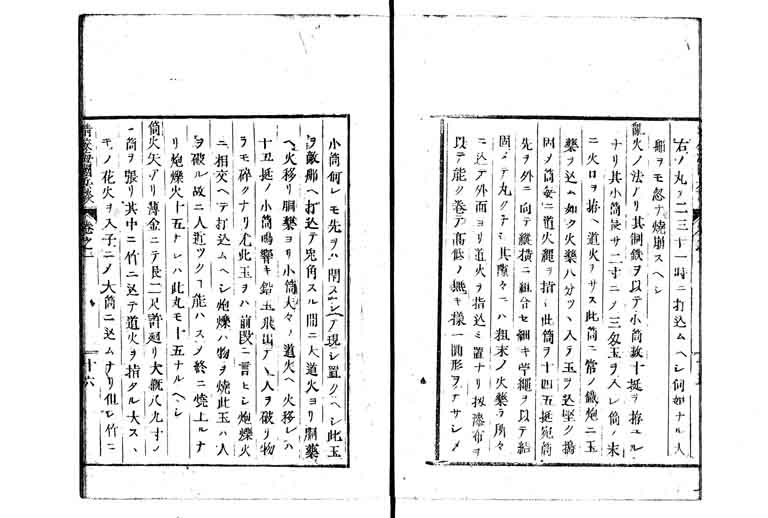 右ノ丸ヲ二三十一時ニ打込ムヘシ何如ナル大
舶ヲモ忽チ燒崩スヘシ
亂火ノ法アリ其制鉄ヲ以テ小筒数十挺ヲ拵ユルし
ナリ其小筒長サ二寸ニノ三匁玉ヲ入レ筒ノ末
ニ火口ヲ拵ヘ道火ヲサス此筒ニ常ノ鐡炮ニ玉
藥ヲ込ム如ク火藥八分ツヽ入テ玉ヲ込堅ク搗
固メ筒每ニ道火繩ヲ指シ此筒ヲ十四五挺宛筒
先ヲ外ニ向テ縦横ニ組合セ細キ苧繩ヲ以テ結
固メテ丸クテシ其隙々ニハ粗末ノ火藥ヲ所々
ニ込テ外面ヨリ道火ヲ指込ミ置ナリ扨漆布ヲ
以テ能ク卷テ高低ノ無キ様一圓形ヲナサシメ
小筒何レモ先ヲハ閉スシテ現シ置クヘシ此玉
ヲ敵舶ヘ打込テ兎角スル間ニ大道火ヨリ胴藥
ヘ火移リ胴藥ヨリ小筒夫々ノ道火ヘ火移レハ
十五挺ノ小筒鳴響キ鉛玉飛出テ人ヲ破リ物
ヲモ碎クナリ尤此玉ヲハ前段ニ言ヒシ炮爍火
ニ相交ヘテ打込ムヘシ炮爍ハ物ヲ焼此玉ハ人
ヲ破ル故ニ人近ツクヿ能ハスノ終ニ焼上ルナ
リ炮爍火十五ナレハ此丸モ十五ナルヘシ
筒火矢アリ薄金ニテ長二尺許廻リ大概八九寸ノ
筒ヲ張リ其中ニ竹ニ込テ道火ヲ指タル大スヽ
モノ花火ヲ入子ニメ大筒ニ込ムナリ但シ竹ニ
卷之二
十六